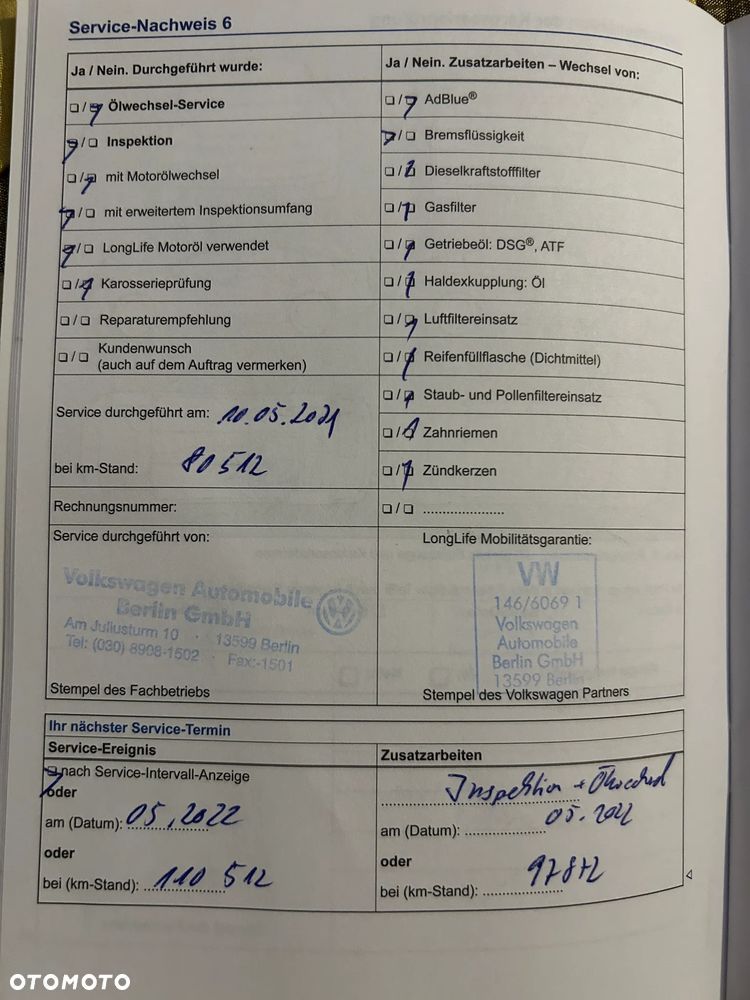 Service-Nachweis 6
Ja / Nein. Durchgeführt wurde:
/ Ölwechsel-Service
/ Inspektion
/ mit Motorölwechsel
/ mit erweitertem Inspektionsumfang
/ LongLife Motoröl verwendet
/ Karosserieprüfung
/ Reparaturempfehlung
/ Kundenwunsch
(auch auf dem Auftrag vermerken)
Service durchgeführt am: 10.05.2021
bei km-Stand: 80512
Rechnungsnummer:
Service durchgeführt von:
Volkswagen Automobile
Berlin GmbH
Am Juliusturm 10 · 13599 Berlin
Tel: (030) 8908-1502 · Fax:-1501
Stempel des Fachbetriebs
Ja / Nein. Zusatzarbeiten – Wechsel von:
/ AdBlue®
/ Bremsflüssigkeit
/ Dieselkraftstofffilter
/ Gasfilter
/ Getriebeöl: DSG®, ATF
/ Haldexkupplung: Öl
/ Luftfiltereinsatz
/ Reifenfüllflasche (Dichtmittel)
/ Staub- und Pollenfiltereinsatz
/ Zahnriemen
/ Zündkerzen
/ .....................
LongLife Mobilitätsgarantie:
VW
146/6069 1
Volkswagen
Automobile
Berlin GmbH
13599 Berlin
Stempel des Volkswagen Partners
Ihr nächster Service-Termin
Service-Ereignis
nach Service-Intervall-Anzeige
oder
am (Datum): 05.2022
oder
bei (km-Stand): 110 512
Zusatzarbeiten
Inspektion +
05.2022
am (Datum):
oder
bei (km-Stand):
OTOMOTO